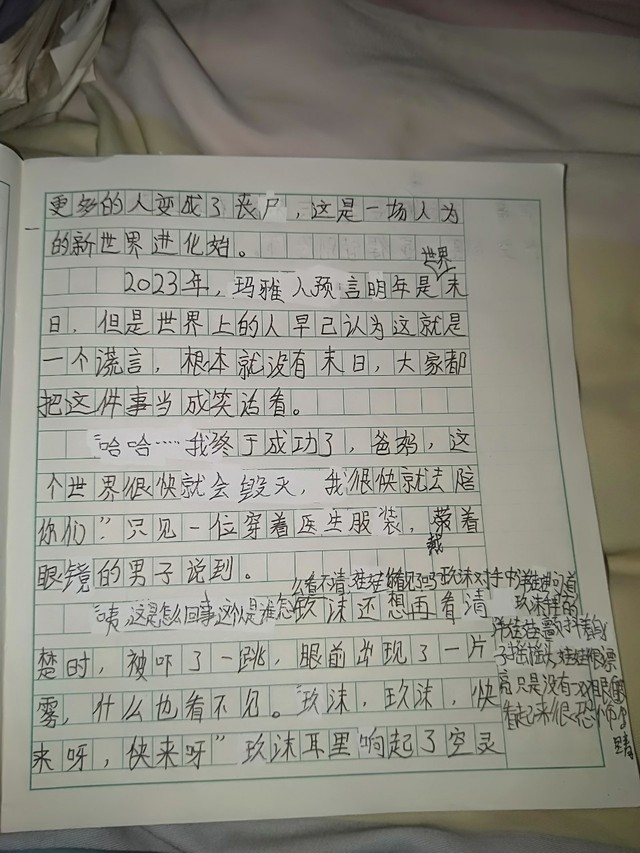 更多的人变成了丧尸，这是一场人为
的新世界进化始。
世界
2023年，玛雅人预言明年是末
日，但是世界上的人早已认为这就是
一个谎言，根本就没有末日，大家都
把这件事当成笑话看。
“哈哈……我终于成功了，爸妈，这
个世界很快就会毁灭，我很快就去陪
你们”只见一位穿着医生服装，带着
戴
眼镜的男子说到。
么看不清，娃娃你看见了吗？玖沫对手中的洋娃娃问道
“咦，这是怎么回事这个人是谁怎玖沫还想再看清
楚时，被吓了一跳，眼前出现了一片
雾，什么也看不见。“玖沫，玖沫，快
来呀，快来呀”玖沫耳里响起了空灵
玖沫手里的
洋娃娃
子摇摇头，娃娃很漂
亮只是没有一双眼
看起来很恐怖